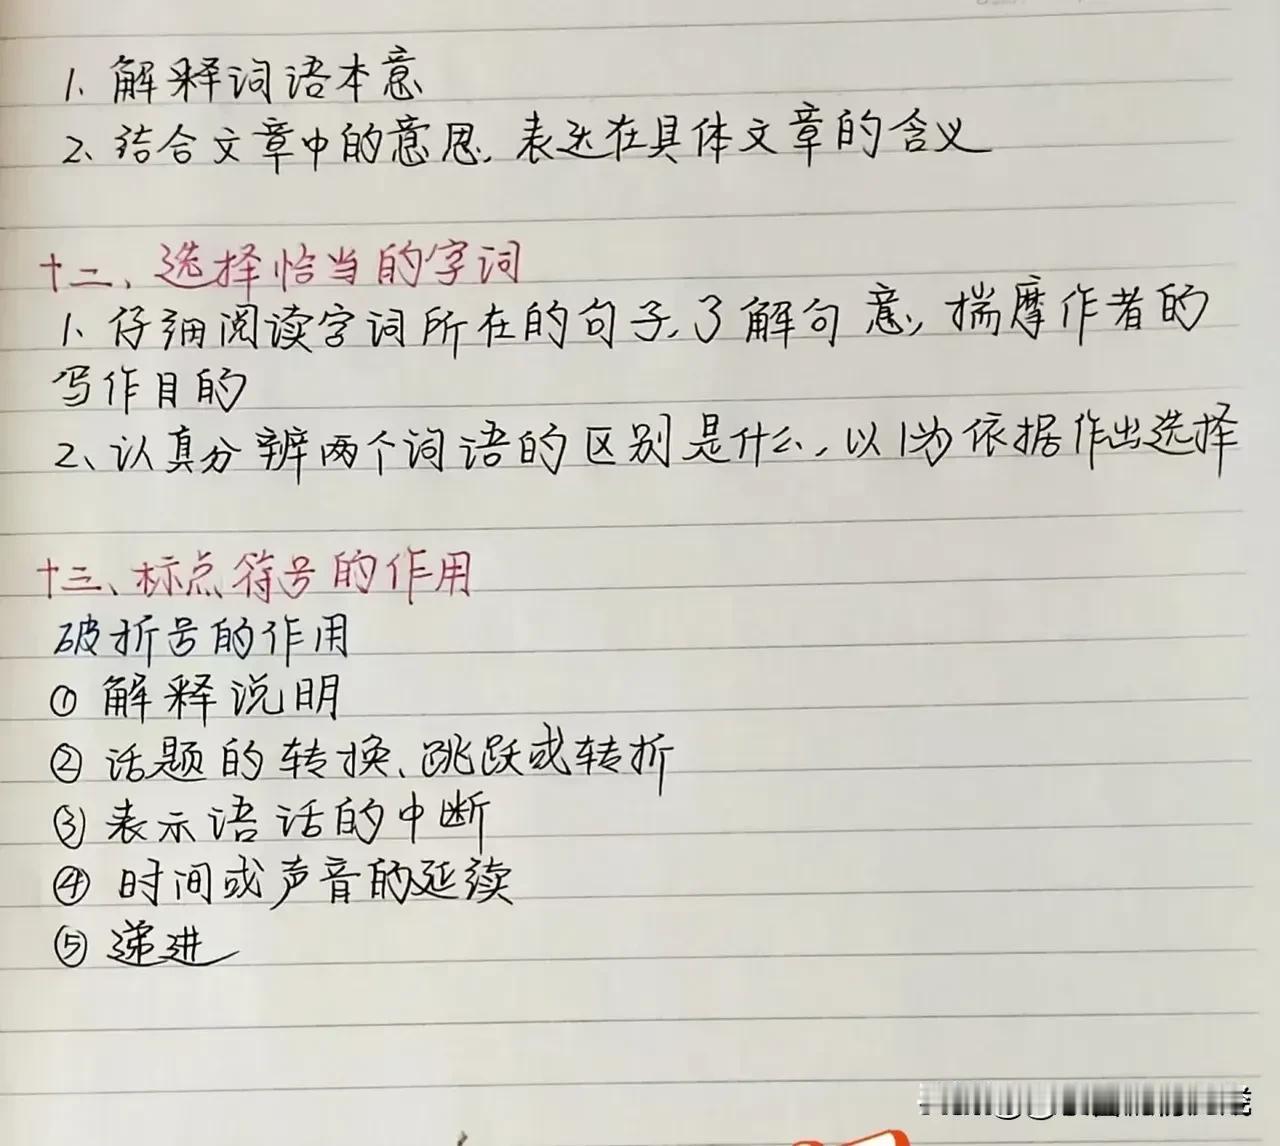 1、解释词语本意
2、结合文章中的意思,表达在具体文章的含义
十二、选择恰当的字词
1、仔细阅读字词所在的句子,了解句意,揣摩作者的
写作目的
2、认真分辨两个词语的区别是什么,以1为依据作出选择
十三、标点符号的作用
破折号的作用
①解释说明
②话题的转换、跳跃或转折
③表示语话的中断
④时间或声音的延续
⑤递进